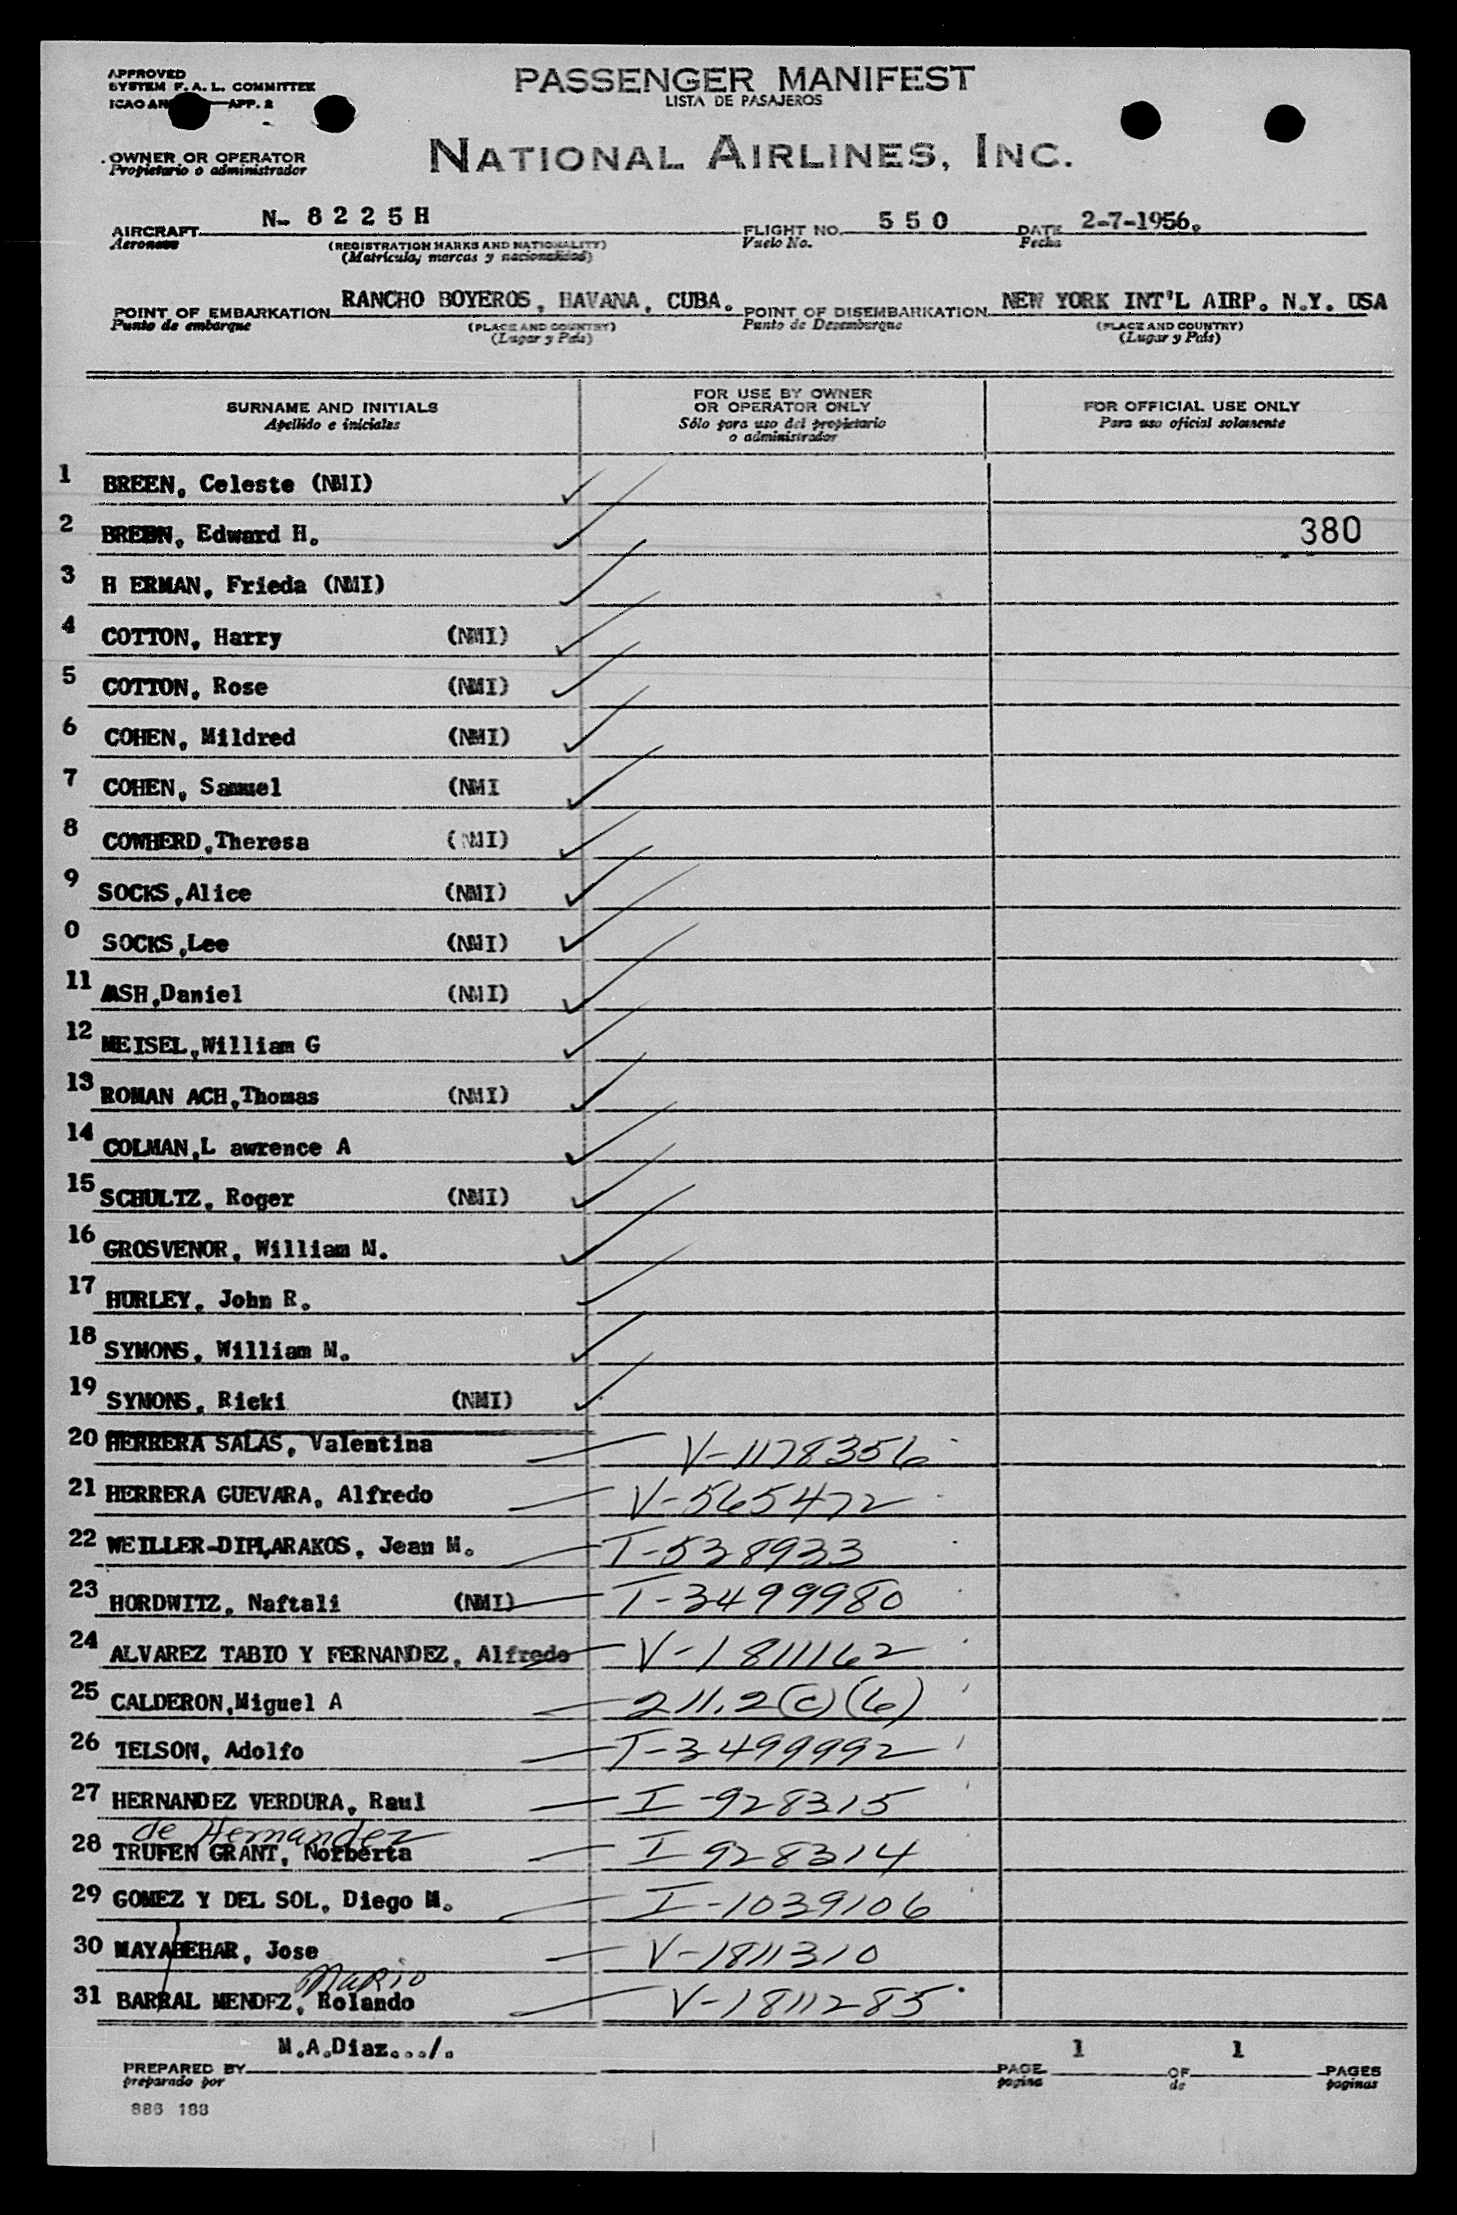 APPROVED
SYSTEM F.A.L. COMMITTEE
ICAO AN APP. 2
PASSENGER MANIFEST
LISTA DE PASAJEROS
OWNER OR OPERATOR
Propietario o administrador
NATIONAL AIRLINES, INC.
AIRCRAFT N- 8 2 2 5 H FLIGHT NO. 5 5 0 DATE 2-7-1956.
Aeronave (REGISTRATION MARKS AND NATIONALITY) Vuelo No. Fecha
(Matrícula, marcas y nacionalidad)
POINT OF EMBARKATION RANCHO BOYEROS, HAVANA, CUBA. POINT OF DISEMBARKATION NEW YORK INT'L AIRP. N.Y. USA
Punto de embarque (PLACE AND COUNTRY) Punto de Desembarque (PLACE AND COUNTRY)
(Lugar y País) (Lugar y País)
SURNAME AND INITIALS FOR USE BY OWNER OR OPERATOR ONLY FOR OFFICIAL USE ONLY
Apellido e iniciales Sólo para uso del propietario o administrador Para uso oficial solamente
1 BREEN, Celeste (NMI)
2 BREEN, Edward H. 380
3 H ERMAN, Frieda (NMI)
4 COTTON, Harry (NMI)
5 COTTON, Rose (NMI)
6 COHEN, Mildred (NMI)
7 COHEN, Samuel (NMI
8 COWHERD,Theresa (NMI)
9 SOCKS,Alice (NMI)
0 SOCKS,Lee (NMI)
11 ASH,Daniel (NMI)
12 MEISEL,William G
13 ROMAN ACH,Thomas (NMI)
14 COLMAN,L awrence A
15 SCHULTZ, Roger (NMI)
16 GROSVENOR, William M.
17 HURLEY, John R.
18 SYMONS, William M.
19 SYMONS, Ricki (NMI)
20 HERRERA SALAS, Valentina V-1178356
21 HERRERA GUEVARA, Alfredo V-565472
22 WEILLER-DIPLARAKOS, Jean M. T-538933
23 HORDWITZ, Naftali (NMI) T-3499980
24 ALVAREZ TABIO Y FERNANDEZ, Alfredo V-1811162
25 CALDERON,Miguel A 211.2(c)(6)
26 TELSON, Adolfo T-3499992
27 HERNANDEZ VERDURA, Raul I-928315
de Hernandez
28 TRUFEN GRANT, Norberta I-928314
29 GOMEZ Y DEL SOL, Diego M. I-1039106
30 MAYABEHAR, Jose V-1811310
Mario
31 BARRAL MENDEZ, Rolando V-1811285
PREPARED BY M.A.Diaz.../. PAGE 1 OF 1 PAGES
preparado por pagina de paginas
886 188